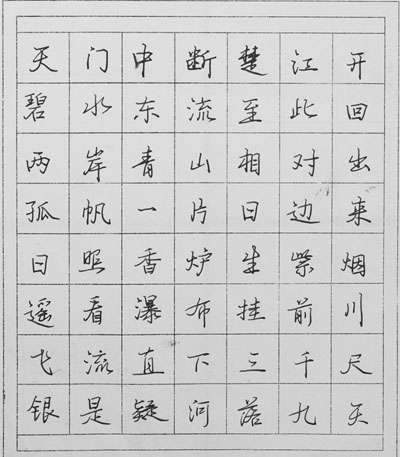 天门中断楚江开
碧水东流至此回
两岸青山相对出
孤帆一片日边来
日照香炉生紫烟
遥看瀑布挂前川
飞流直下三千尺
银是疑河落九天